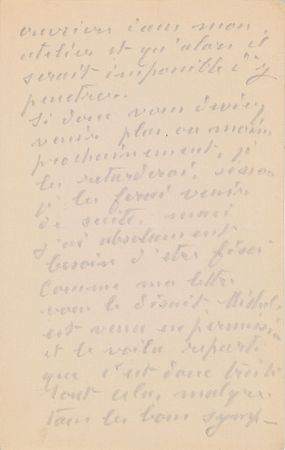 ouvriers dans mon
atelier et qu'alors il
serait impossible d'y
penetrer.
Si donc vous deviez
venir plus ou moins
prochainement, je
les retarderai, sinon
je les ferai venir
de suite, mais
j'ai absolument
besoin d'être fixé
Comme ma lettre
vous le disait Michel
est venu en permission
et le voila reparti
que c'est donc triste
tout cela, malgré
tous les bons symp-